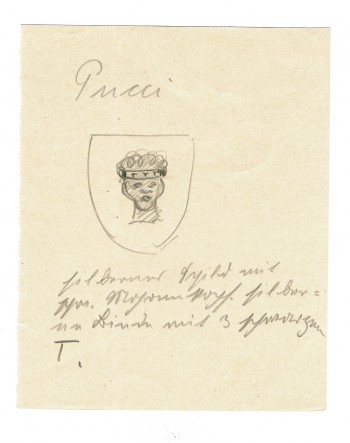 Pucci
silberner Schild mit
schw. Mohrenkopf. silber=
ne Binde mit 3 schwarzen
T.